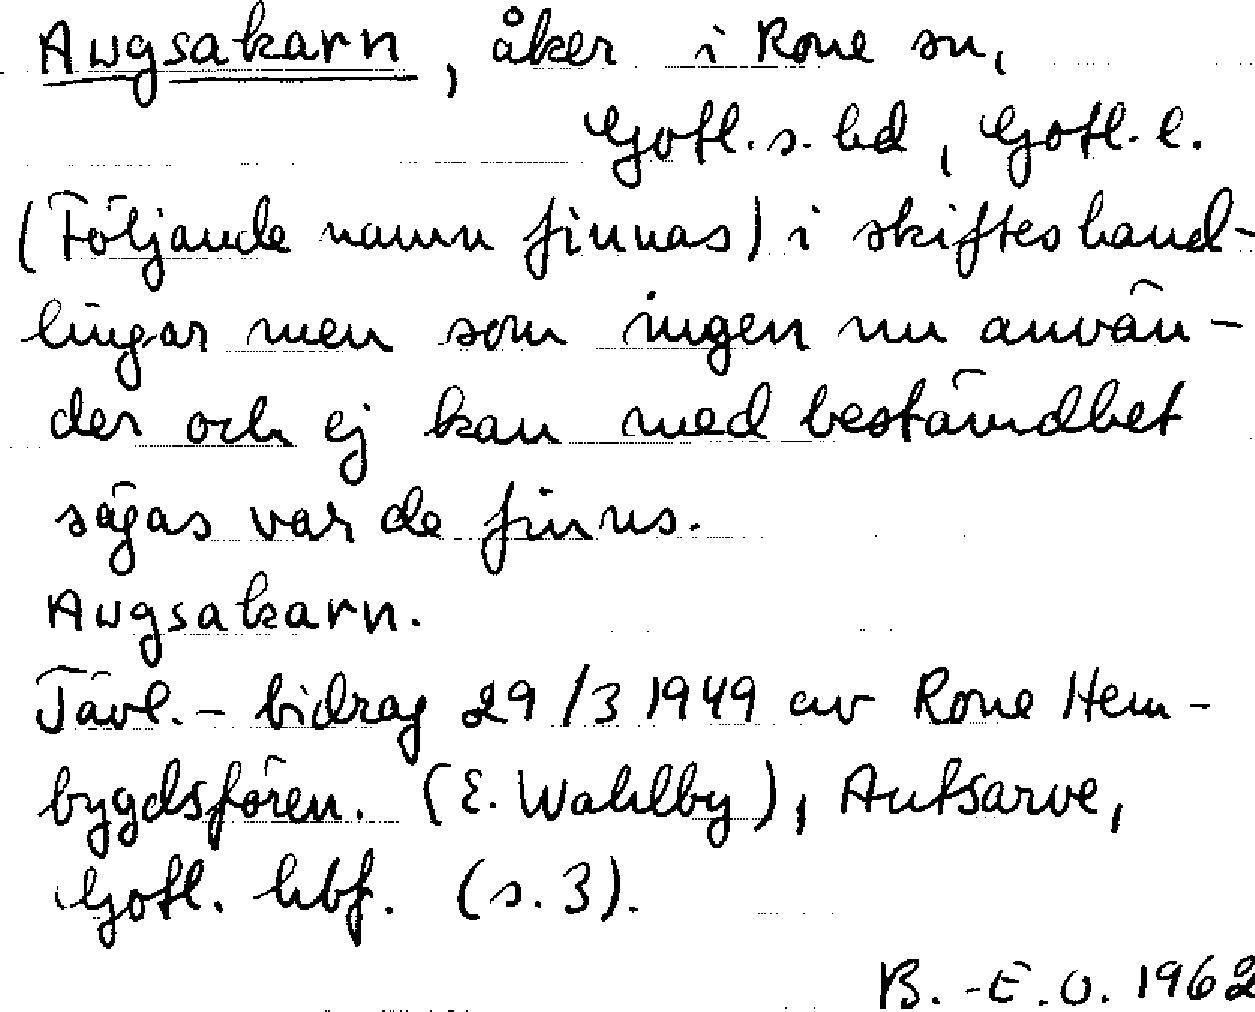 Augsakarn, åker i Rone sn,
Gotl. s. hd, Gotl. l.
(Följande namn finnas) i skifteshand-
lingar men som ingen nu använ-
der och ej kan med bestämdhet
sägas var de finns.
Augsakarn.
Tävl. - bidrag 29/3 1949 av Rone Hem-
bygdsfören. (E. Wahlby), Autsarve,
Gotl. hbf. (s. 3).
B. -E. O. 1962